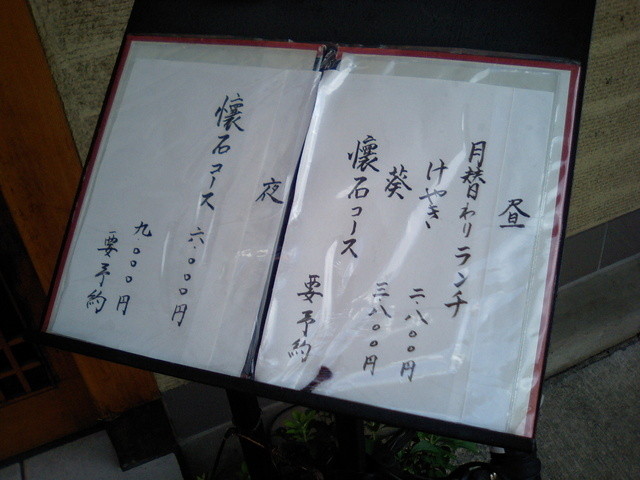 昼
月替わりランチ
けやき 二.八〇〇円
葵 三.八〇〇円
懐石コース 要予約
夜
懐石コース 六.〇〇〇円
九.〇〇〇円
要予約